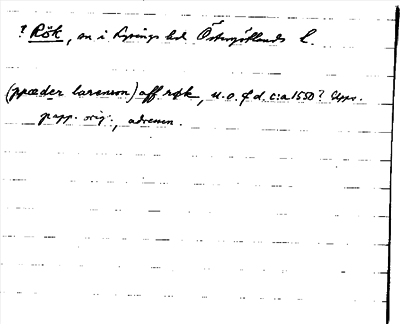 ? Rök, sn i Lysings hd Östergötlands l.
(ppæder larsson) aff røk, u.o. f d. c:a 1550? Upps.
papp. orig., adressen.